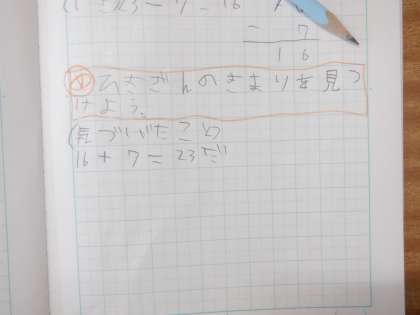 23－7＝16
－ 7
16
め ひきざんのきまりを見つ
けよう。
(気づいたこと
16＋7＝23だ